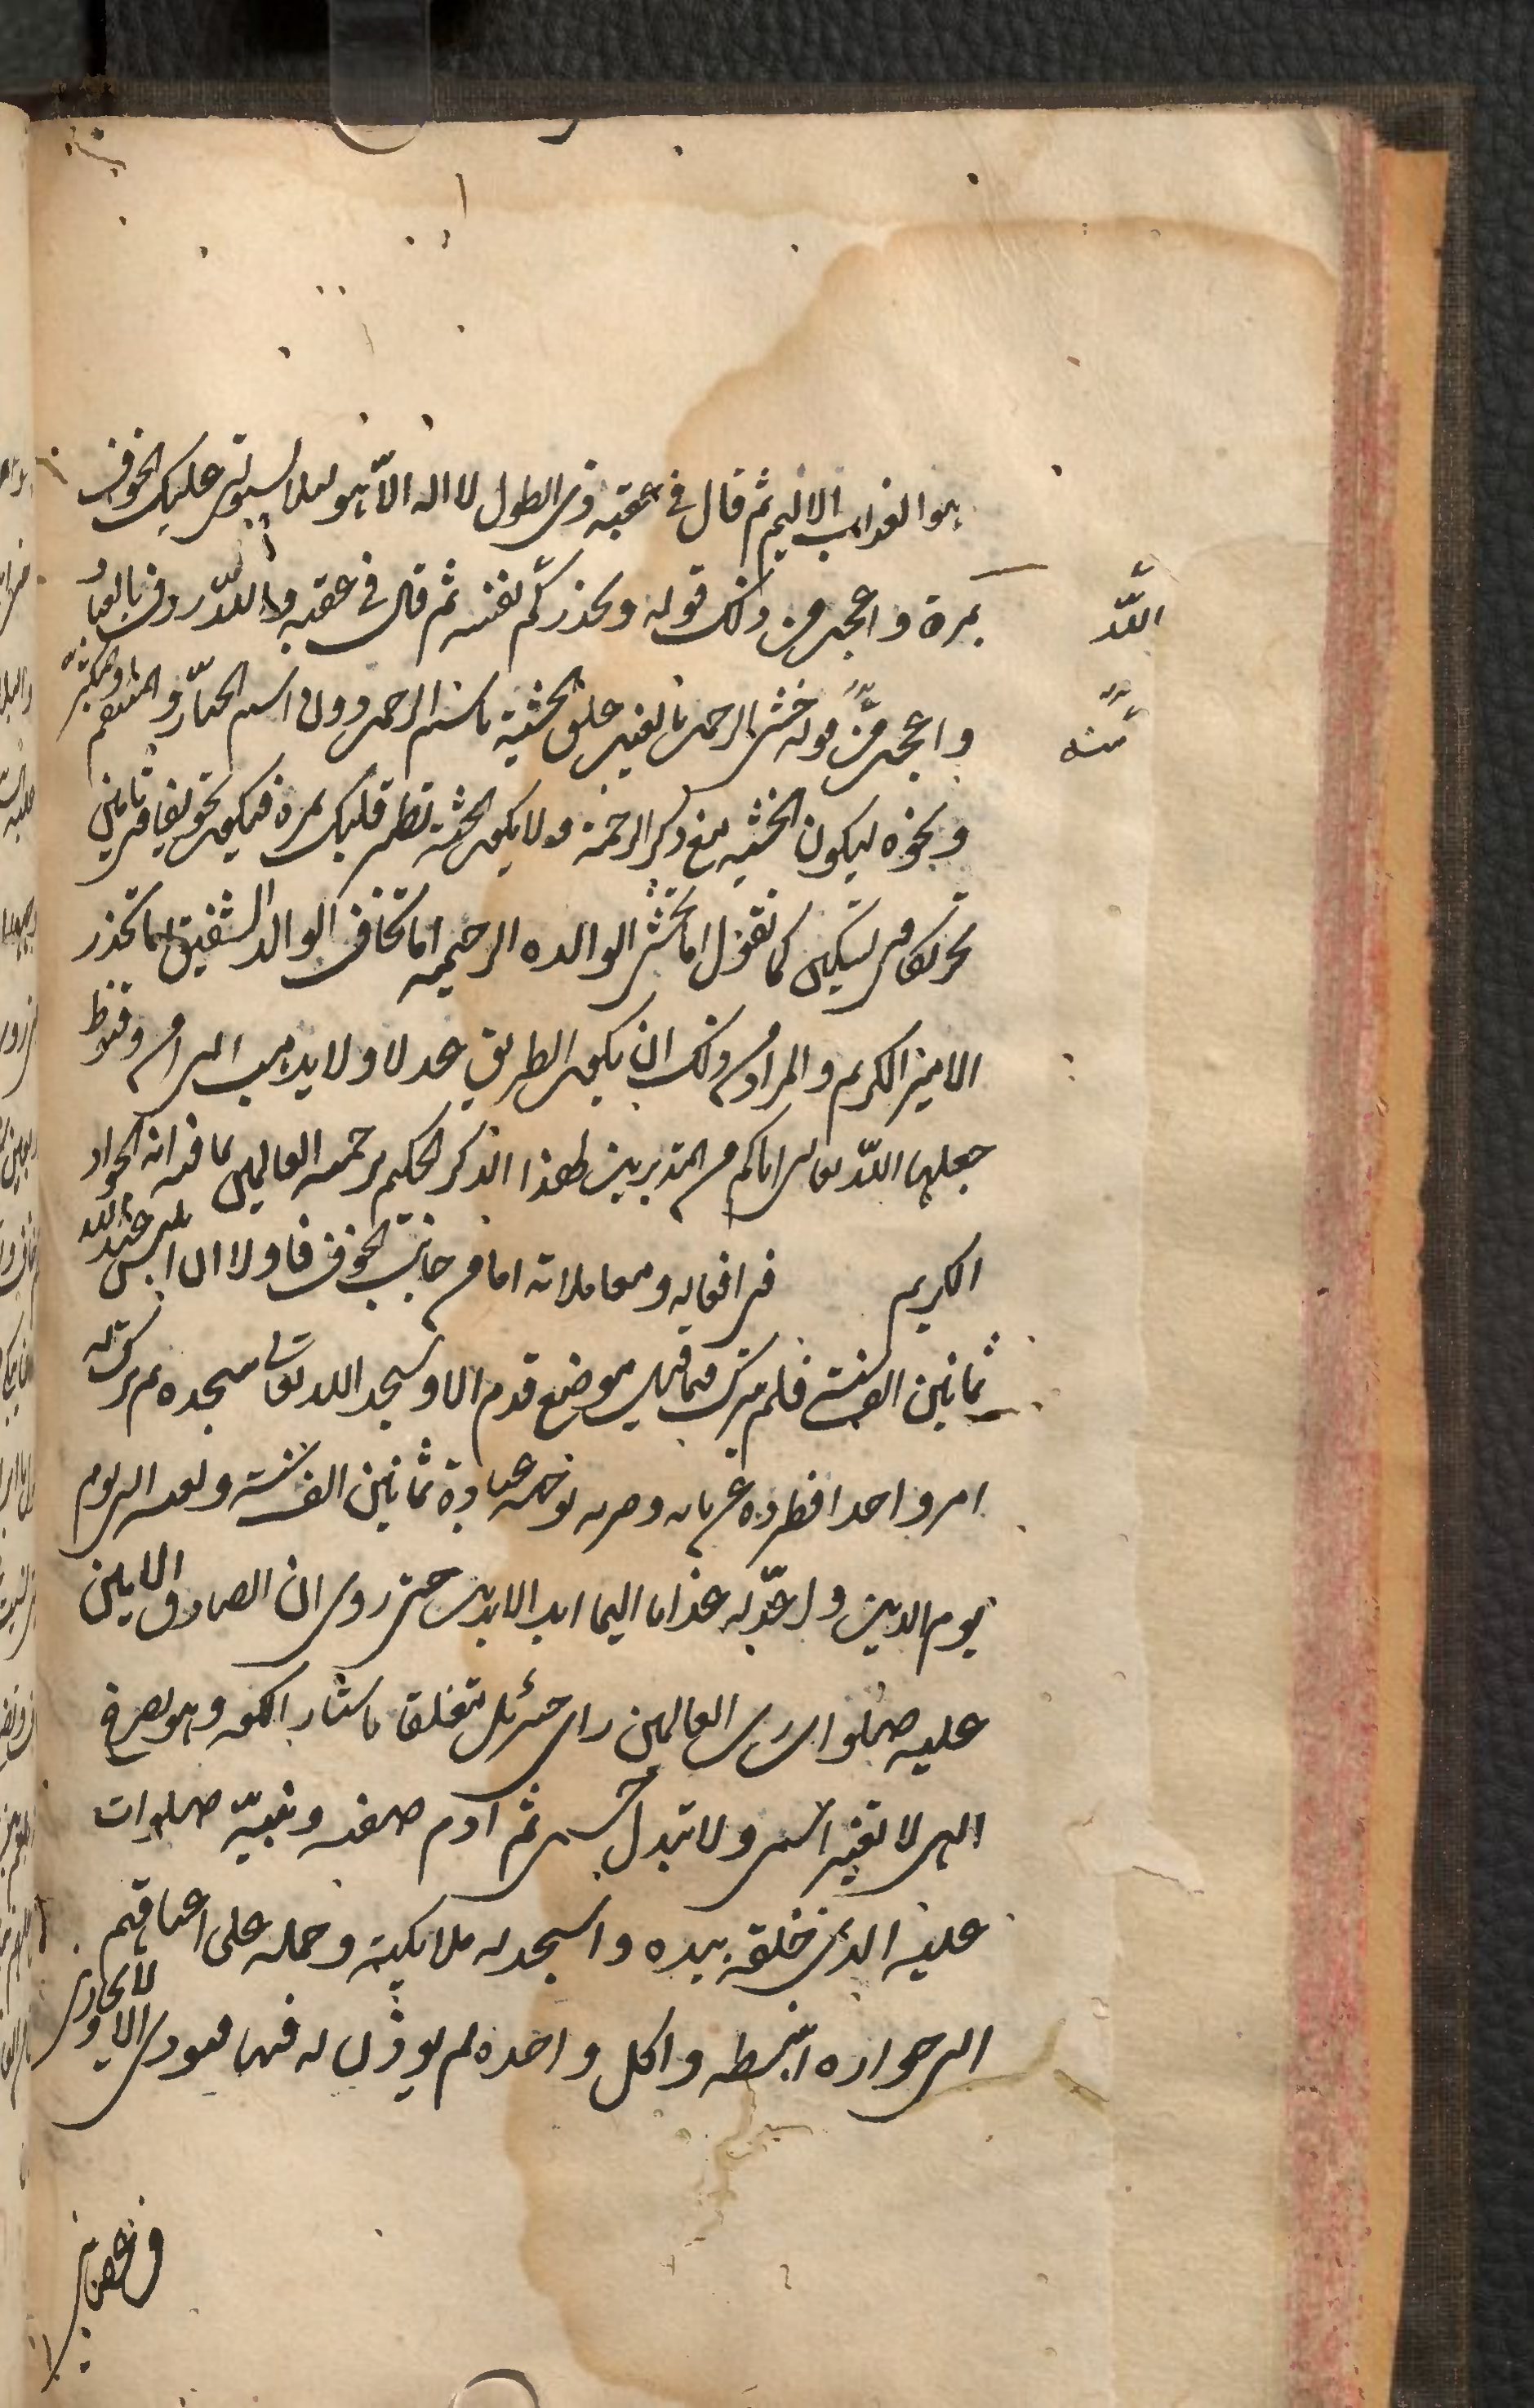 هو العذاب الاليم ثم قال في عقبه ذي الطول لا اله الا هو لئلا يستولي عليك الخوف
بمرة واعجب من ذلك قوله ويحذركم نفسه ثم قال في عقبه والله رؤف بالعباد
الله
واعجب من قوله خشي الرحمن بالغيب علق الخشية باسم الرحمن دون اسم الجبار والمنتقم والمتكبر
منه
ونحوه ليكون الخشية مع ذكر الرحمة ولا يكون الخشية تطير قلبك بمرة فيكون تخويفا في تامين
تحريكا في تسكين كما تقول اما تخشى الوالدة الرحيمة اما تخاف الوالد الشفيق اما تحذر
الامير الكريم والمراد من ذلك ان يكون الطريق عدلا ولا يذهب الى امن وقنوط
جعلنا الله تعالى اياكم من المتدبرين لهذا الذكر الحكيم برحمته العالمين بما فيه انه الجواد
الكريم في افعاله ومعاملاته اما من جانب الخوف فاولا ان ابليس عبد الله
ثمانين الف سنة فلم يترك فيما قيل موضع قدم الا وسجد لله تعالى سجدة ثم ترك له
امرا واحدا فطرده عن بابه وضرب بوجهه عبادة ثمانين الف سنة ولعنه الى يوم
يوم الدين واعد له عذابا اليما ابد الابدين حتى روي ان الصادق الامين
عليه صلوات رب العالمين راى جبرئيل متعلقا باستار الكعبة وهو يصرخ
الهي لا تغير اسمي ولا تبدل جسمي ثم آدم صفيه ونبيه صلوات
عليه الذي خلقه بيده واسجد له ملائكته وحمله على اعناقهم
الى جواره اكل واحدة لم يؤذن له فيها فنودي الا لا يجاورني